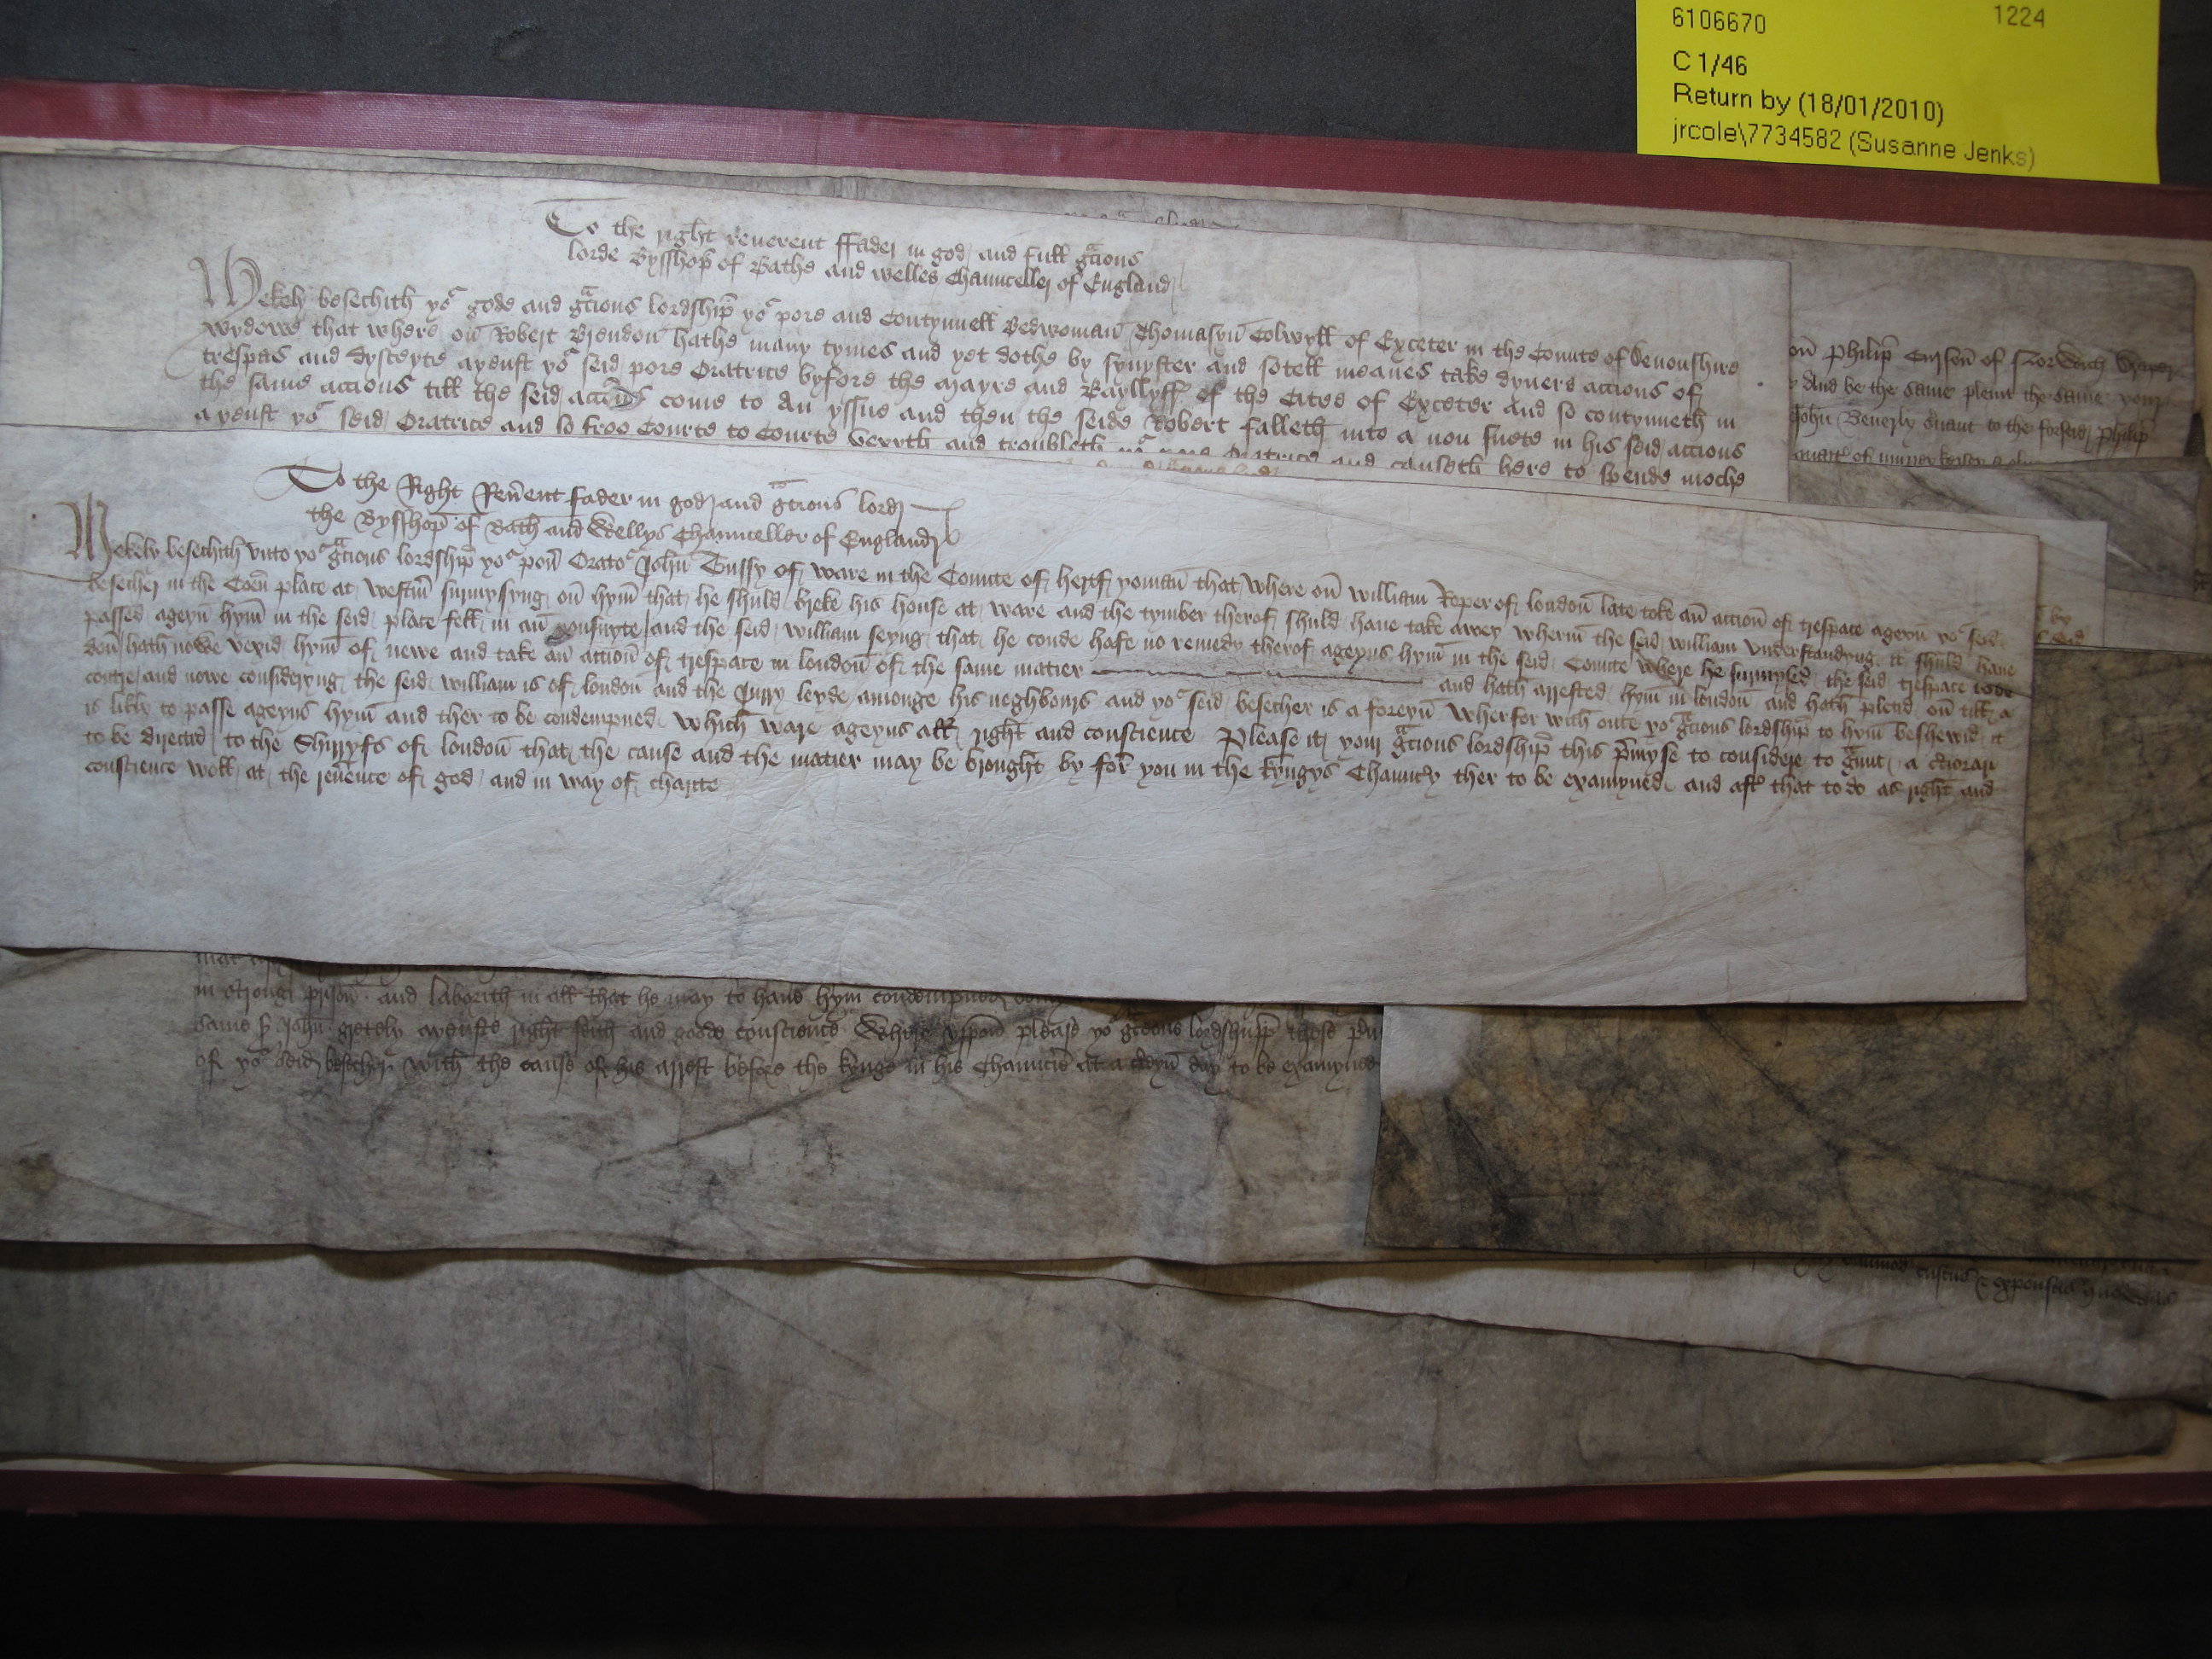 6106670 1224
C 1/46
Return by (18/01/2010)
jrcole\7734582 (Susanne Jenks)
To the right reuerent ffader in god and full gracious
lorde Bysshop of Bathe and welles Chaunceller of England
Mekely besechith yor gode and gracious lordship yor pore and Contynuell Bedwoman Thomasyn Colwyll of Exceter in the Counte of Devonshire
wydowe that where on Robert Brendon hathe many tymes and yet dothe by synyster and sotell meanes take dyuers accions of
trespas and dysceyte ayenst yor seid pore Oratrice byfore the Mayre and Bayllyffs of the Citee of Exceter and so contynueth in
the same accions till the seid accions come to An yssue and then the seide Robert falleth into a non suete in his seid accions
ayenst yor seid Oratrice and so froo Courte to Courte vexeth and troubleth yor pore Oratrice and causeth here to spende moche
on Philip Curson of Norwich
And be the same pleint the same
John Beuerly to the forseid Philip
To the Right Reuerent fader in god and gracious lord
the Bysshop of Bath and Wellys Chaunceller of England
Mekely besechith vnto yor gracious lordship yor pouer Orator John Tussy of ware in the Counte of hertf yoman that where on william Roper of london late toke an accion of trespace ageyn yor seid
besecher in the Coen place at westm surmysyng on hym that he shuld breke his house at ware and the tymber therof shuld haue take awey wherin the seid william vnderstandyng it shuld haue
passed ageyn hym in the seid place fell in an nonsuyte and the seid william seyng that he coude hafe no remedy therof ageyns hym in the seid Counte where he surmysed the seid trespace
don hath nowe vexid hym of newe and take an accion of trespace in london of the same matier and hath arrested hym in london and hath pletid on till a
contre and nowe consideryng the seid william is of london and the Jurry leyde amonge his neghbours and yor seid besecher is a foreyn wherfor with oute yor gracious lordship to hym beshewid it
is likly to passe ageyns hym and ther to be condempned which ware ageyns all right and conscience Please it your gracious lordship this premyse to considere to graunt a cciorari
to be directid to the Shirryfs of london that the cause and the matier may be brought by for you in the kyngys Chauncery ther to be examyned and aftr that to do as right and
conscience woll at the reuerence of god and in way of charite
in strong prison and laborith in all that he may to haue hym condempned
same John gretely ayenste right feith and goode conscience please yor gracious lordshipp these
of yor seid besecher with the cause of his arrest before the kynge in his Chauncerie at a certeyn day to be examyned